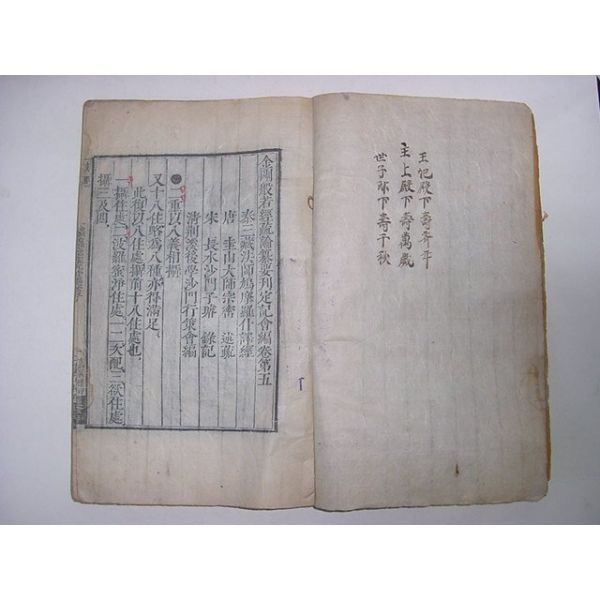 王妃殿下壽齊年
主上殿下壽萬歲
世子邸下壽千秋
金剛般若經疏論纂要刊定記會編卷第五
秦三藏法師鳩摩羅什譯經
唐 圭山大師宗密 述疏
宋 長水沙門子璿 錄記
清荆溪後學沙門行策會編
二重以八義相攝
又十八住略為八種亦得滿足
此復以八住處攝前十八住處也
一攝住處二波羅蜜淨住處一二文配三欲住處
攝三及四